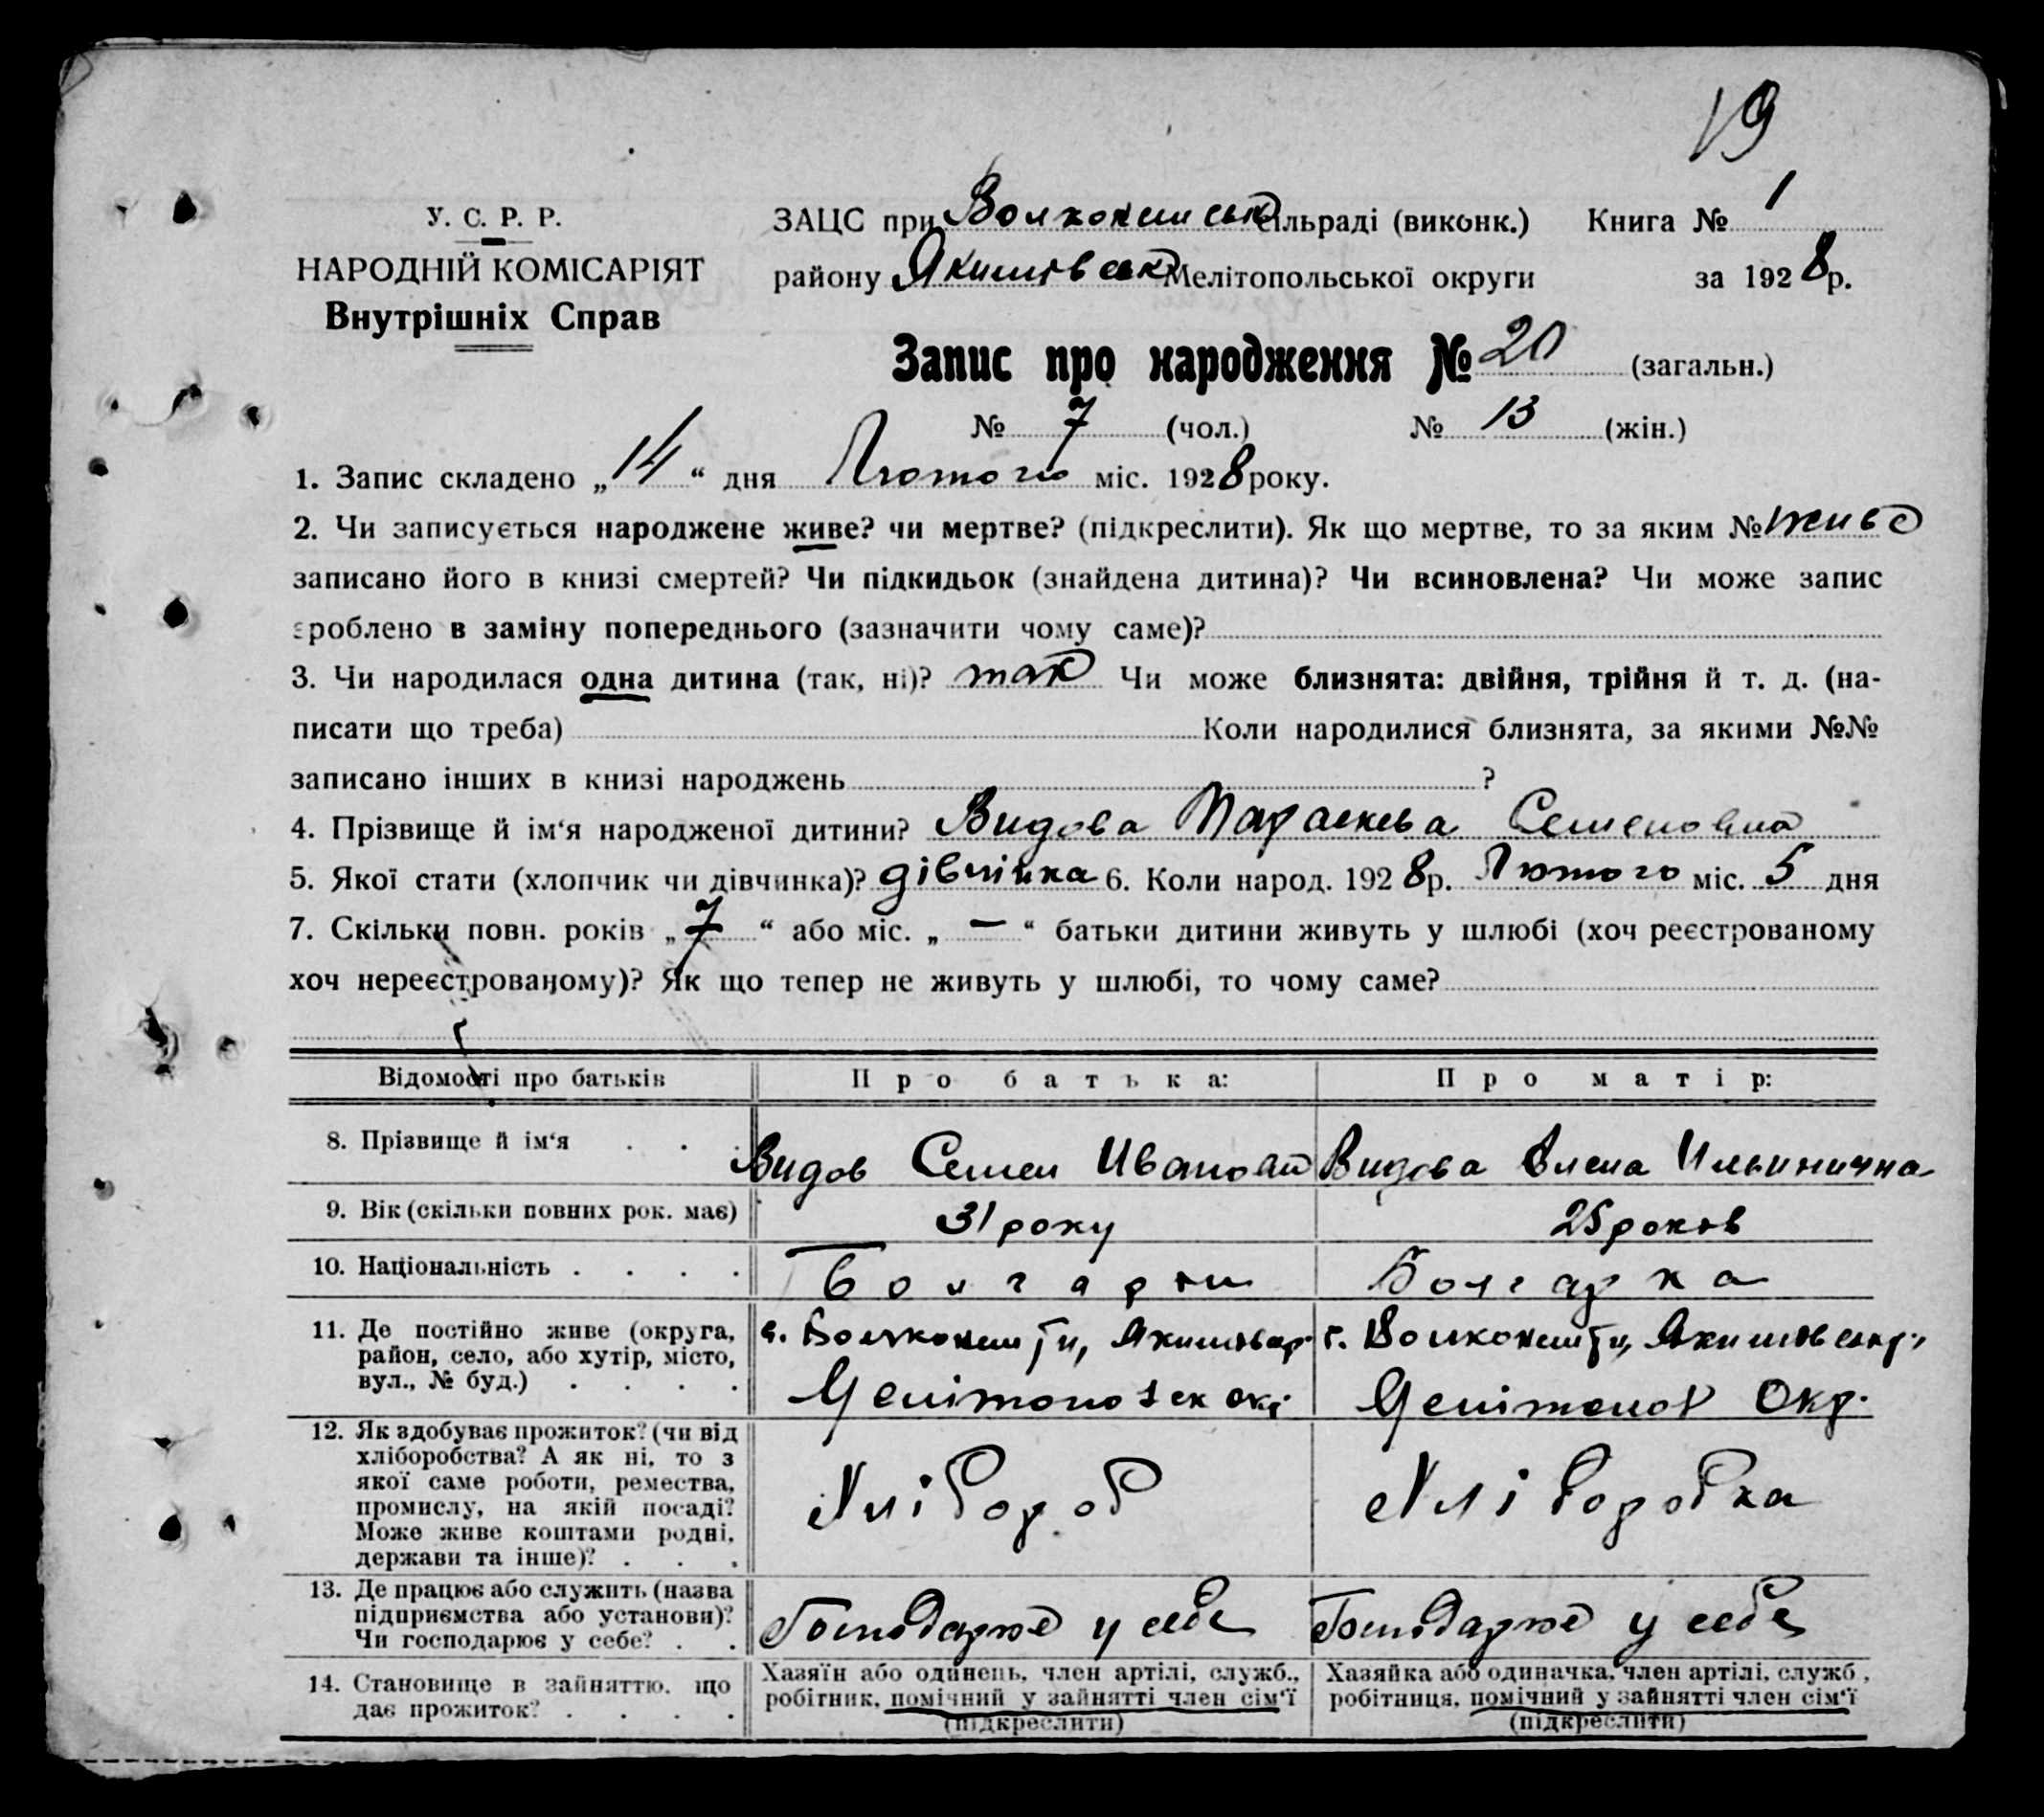 19
У. С. Р. Р.
НАРОДНІЙ КОМІСАРІЯТ
Внутрішніх Справ
ЗАЦС при сільраді (виконк.) Книга № 1
району Мелітопольської округи за 1928 р.
Запис про народження № 20 (загальн.)
№ 7 (чол.) № 13 (жін.)
1. Запис складено „14“ дня Лютого міс. 1928 року.
2. Чи записується народжене живе? чи мертве? (підкреслити). Як що мертве, то за яким № живе
записано його в книзі смертей? Чи підкидьок (знайдена дитина)? Чи всиновлена? Чи може запис
зроблено в заміну попереднього (зазначити чому саме)?
3. Чи народилася одна дитина (так, ні)? так Чи може близнята: двійня, трійня й т. д. (на-
писати що треба) Коли народилися близнята, за якими №№
записано інших в книзі народжень ?
4. Прізвище й ім‘я народженої дитини? Видова Параскева Семеновна
5. Якої стати (хлопчик чи дівчинка)? дівчінка 6. Коли народ. 1928 р. Лютого міс. 5 дня
7. Скільки повн. років „7“ або міс. „—“ батьки дитини живуть у шлюбі (хоч реєстрованому
хоч нереєстрованому)? Як що тепер не живуть у шлюбі, то чому саме?
Відомості про батьків Про батька: Про матір:
8. Прізвище й ім‘я Видов Семен Видова Елена Ильинична
9. Вік (скільки повних рок. має) 31 року 25 років
10. Національність Болгарин Болгарка
11. Де постійно живе (округа,
район, село, або хутір, місто,
вул., № буд.)
Мелітопол Окр.
12. Як здобуває прожиток? (чи від
хліборобства? А як ні, то з
якої саме роботи, ремества,
промислу, на якій посаді?
Може живе коштами родні,
держави та інше)?
Хлібороб Хліборобка
13. Де працює або служить (назва
підприємства або установи)?
Чи господарює у себе?
Господарює у себе Господарює у себе
14. Становище в зайняттю, що
дає прожиток?
Хазяїн або одинець, член артілі, служб.,
робітник, помічний у зайнятті член сім‘ї
(підкреслити)
Хазяйка або одиначка, член артілі, служб.,
робітниця, помічний у зайнятті член сім‘ї
(підкреслити)